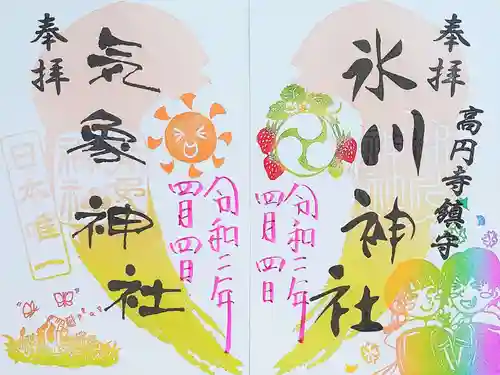 奉拝
高円寺鎮守
氷川神社
令和二年
四月四日
奉拝
気象神社
日本唯一
令和二年
四月四日